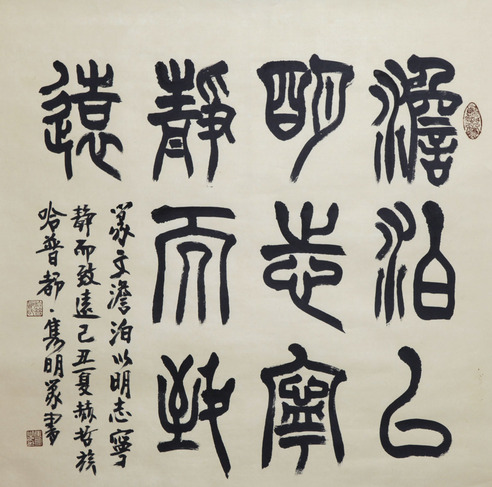 澹泊以
明志寧
靜而致
遠
篆文澹泊以明志寧
静而致遠己丑夏赫哲族
哈普都·隽明篆書